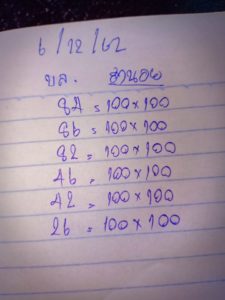 6/12/62
บล. ฮานอย
84 = 100×100
86 = 100×100
82 = 100×100
46 = 100×100
42 = 100×100
26 = 100×100